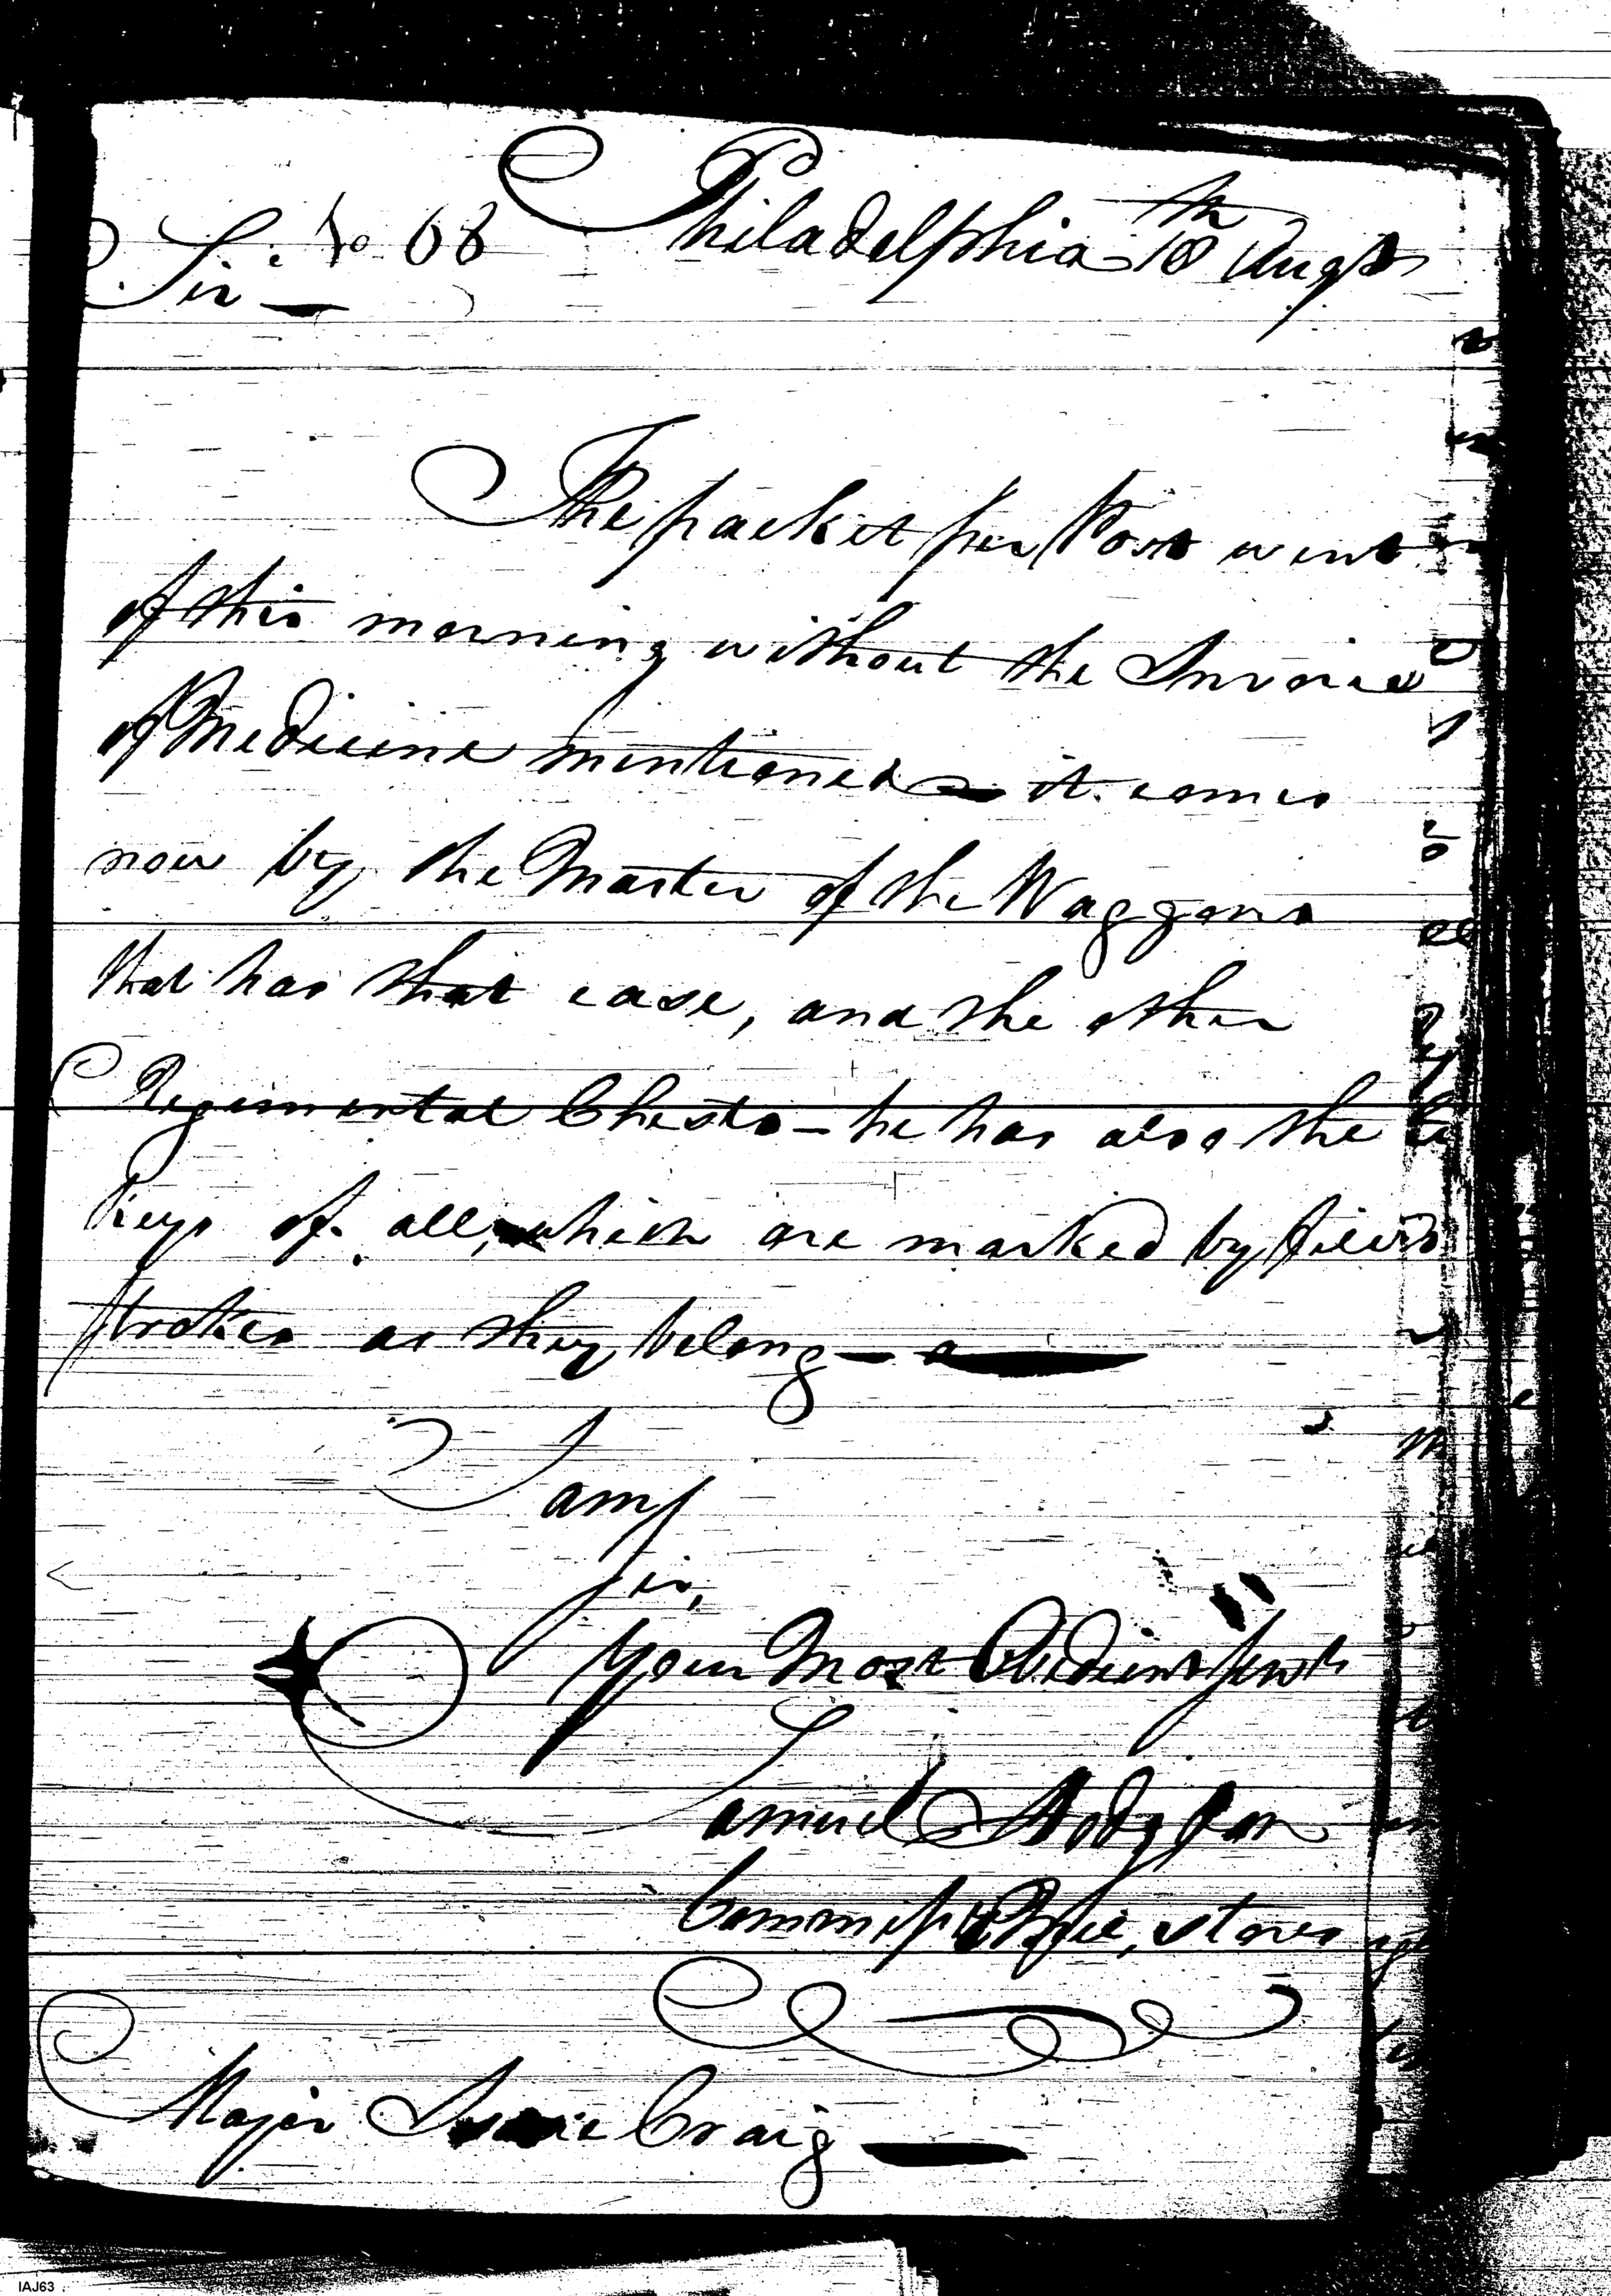 No 68 Philadelphia 18th Augt
Sir
The packet per Post went
of this morning without the Invoice
of Medicine mentioned it comes
now by the Master of the Waggons
that has that case, and the other
Regimental Chests - he has also the
keys of all, which are marked by
strokes as they belong
I am
sir,
your Most Obedient Servt
Samuel Hodgdon
Major Isaac Craig
IAJ63